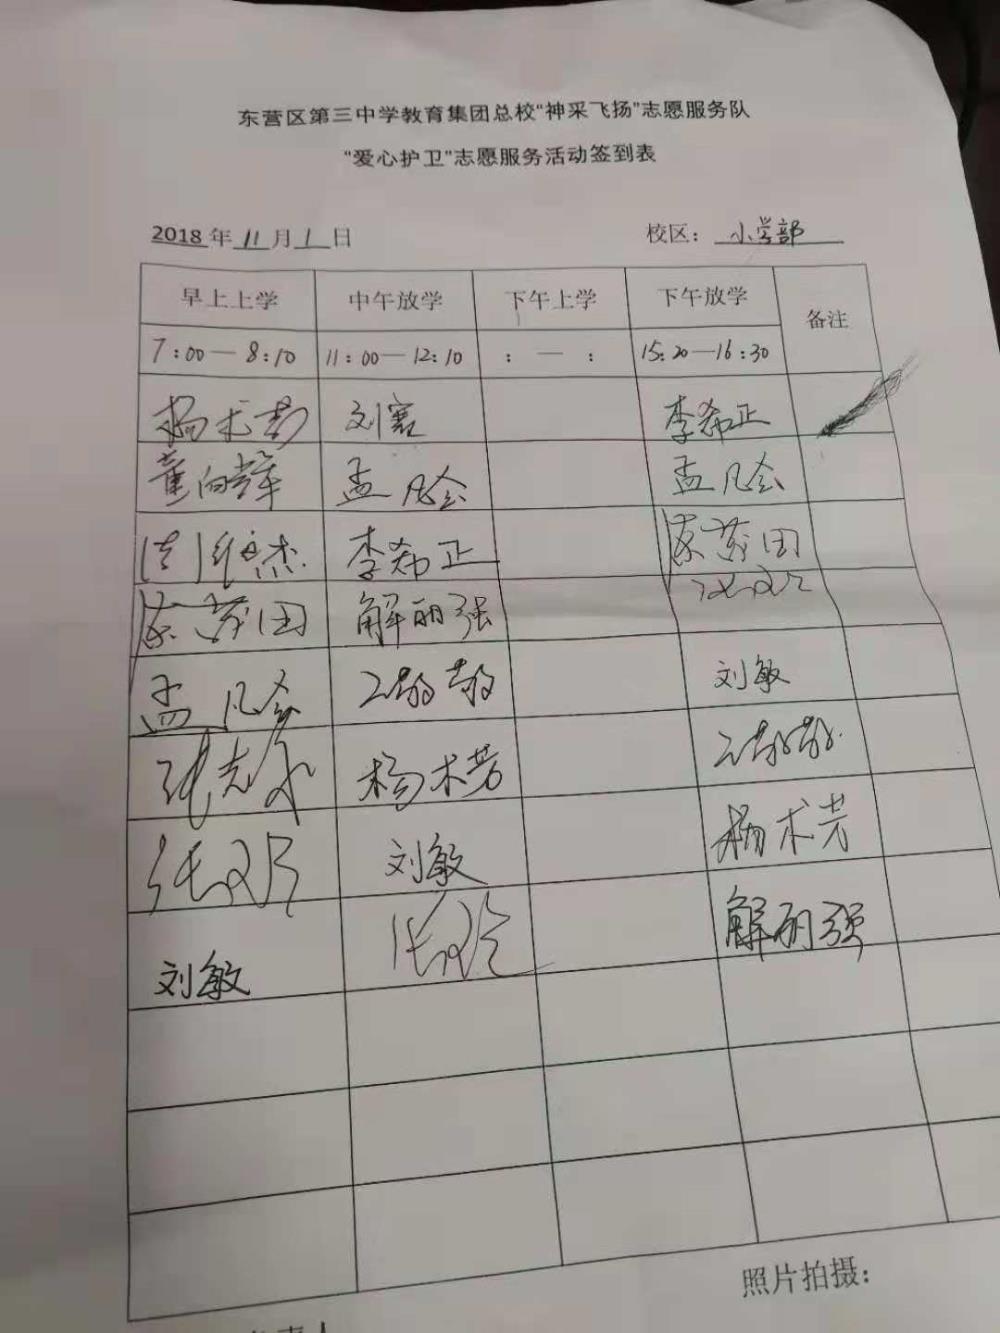 东营区第三中学教育集团总校“神采飞扬”志愿服务队
“爱心护卫”志愿服务活动签到表
2018年11月1日 校区：小学部
早上上学 中午放学 下午上学 下午放学 备注
7:00—8:10 11:00—12:10 : — : 15:20—16:30
刘塞 李希正
董向 孟凡会 孟凡会
维杰 李希正 茂田
茂田 解丽强
孟凡会 敬敬 刘敏
张志 杨术芳 敬敬
张 刘敏 杨术芳
刘敏 张 解丽强
照片拍摄：
负责人